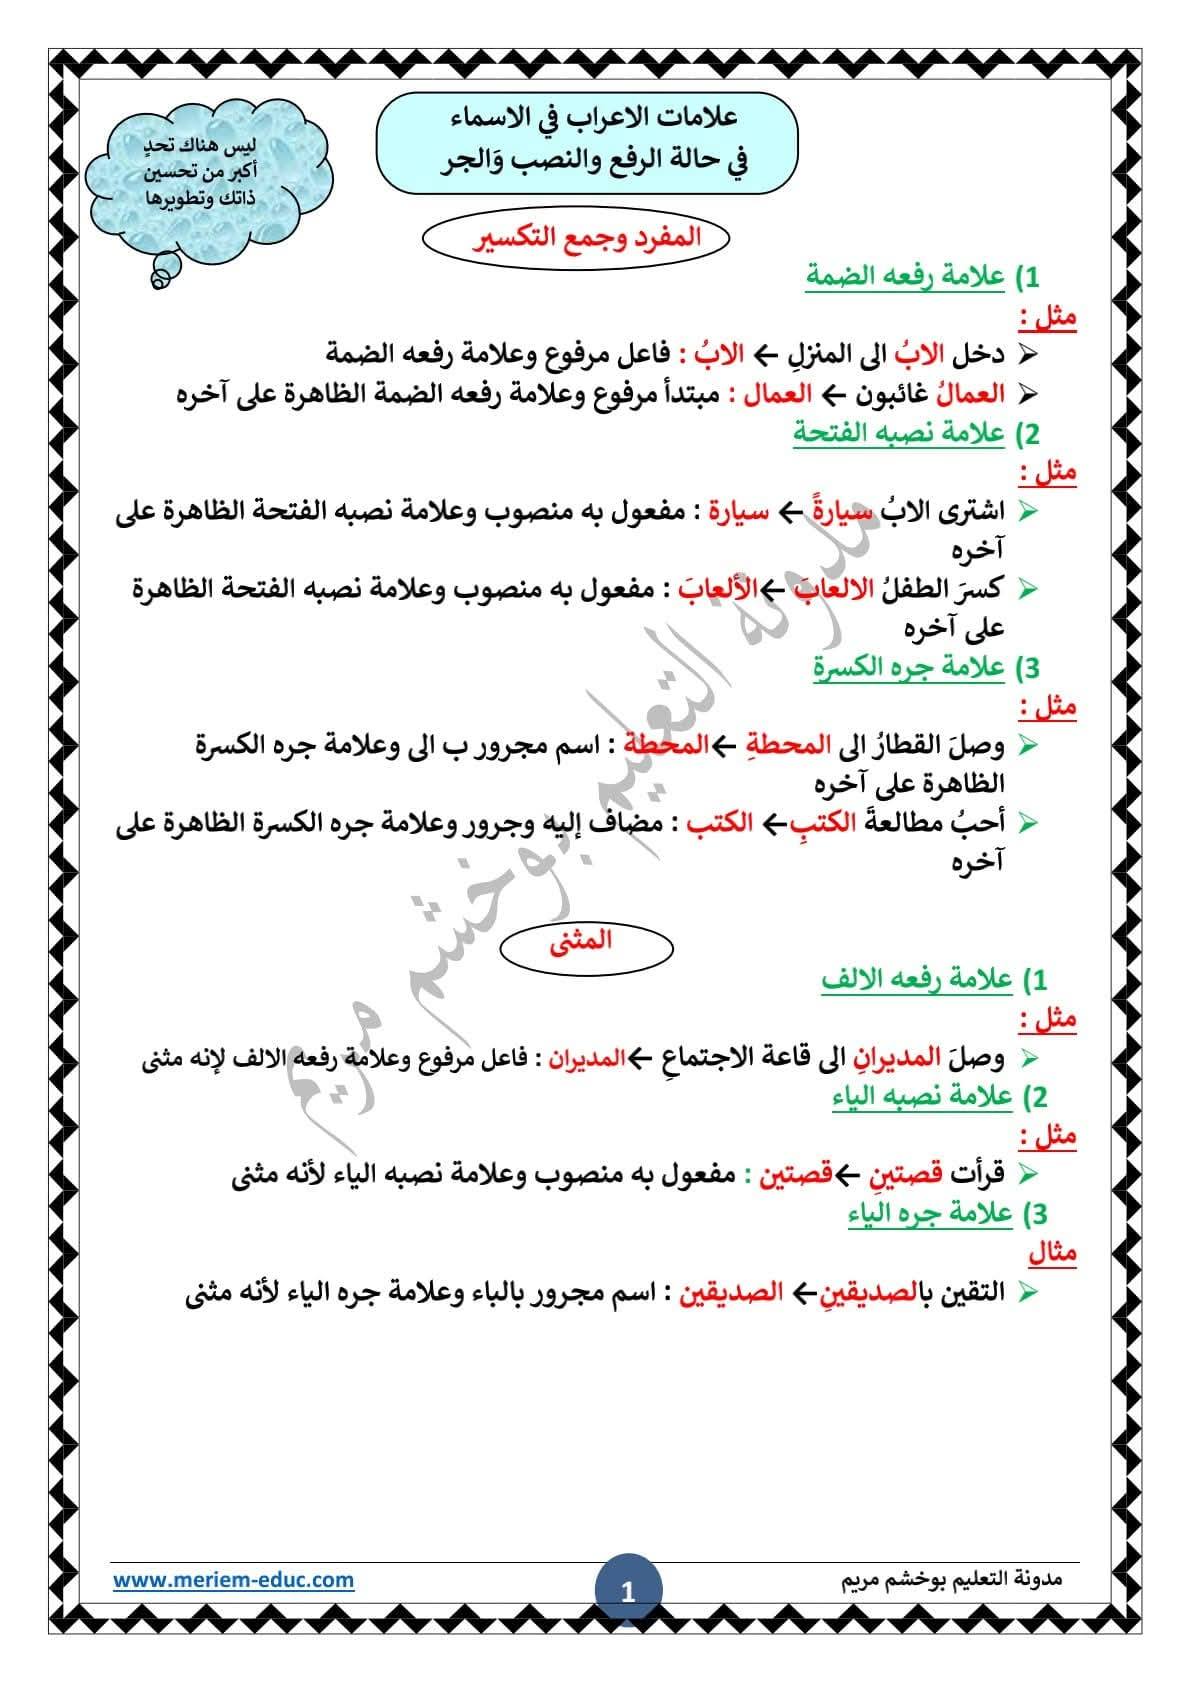 علامات الاعراب في الاسماء
في حالة الرفع والنصب وَالجر
ليس هناك تحدٍ
أكبر من تحسين
ذاتك وتطويرها
المفرد وجمع التكسير
1) علامة رفعه الضمة
مثل :
دخل الابُ الى المنزلِ ← الابُ : فاعل مرفوع وعلامة رفعه الضمة
العمالُ غائبون ← العمال : مبتدأ مرفوع وعلامة رفعه الضمة الظاهرة على آخره
2) علامة نصبه الفتحة
مثل :
اشترى الابُ سيارةً ← سيارة : مفعول به منصوب وعلامة نصبه الفتحة الظاهرة على
آخره
كسرَ الطفلُ الالعابَ ←الألعابَ : مفعول به منصوب وعلامة نصبه الفتحة الظاهرة
على آخره
3) علامة جره الكسرة
مثل :
وصلَ القطارُ الى المحطةِ ←المحطة : اسم مجرور ب الى وعلامة جره الكسرة
الظاهرة على آخره
أحبُ مطالعةَ الكتبِ← الكتب : مضاف إليه وجرور وعلامة جره الكسرة الظاهرة على
آخره
المثنى
1) علامة رفعه الالف
مثل :
وصلَ المديرانِ الى قاعة الاجتماعِ ←المديران : فاعل مرفوع وعلامة رفعه الالف لإنه مثنى
2) علامة نصبه الياء
مثل :
قرأت قصتينِ ←قصتين : مفعول به منصوب وعلامة نصبه الياء لأنه مثنى
3) علامة جره الياء
مثال
التقين بالصديقينِ← الصديقين : اسم مجرور بالباء وعلامة جره الياء لأنه مثنى
مدونة التعليم بوخشم مريم
مدونة التعليم بوخشم مريم
1
www.meriem-educ.com